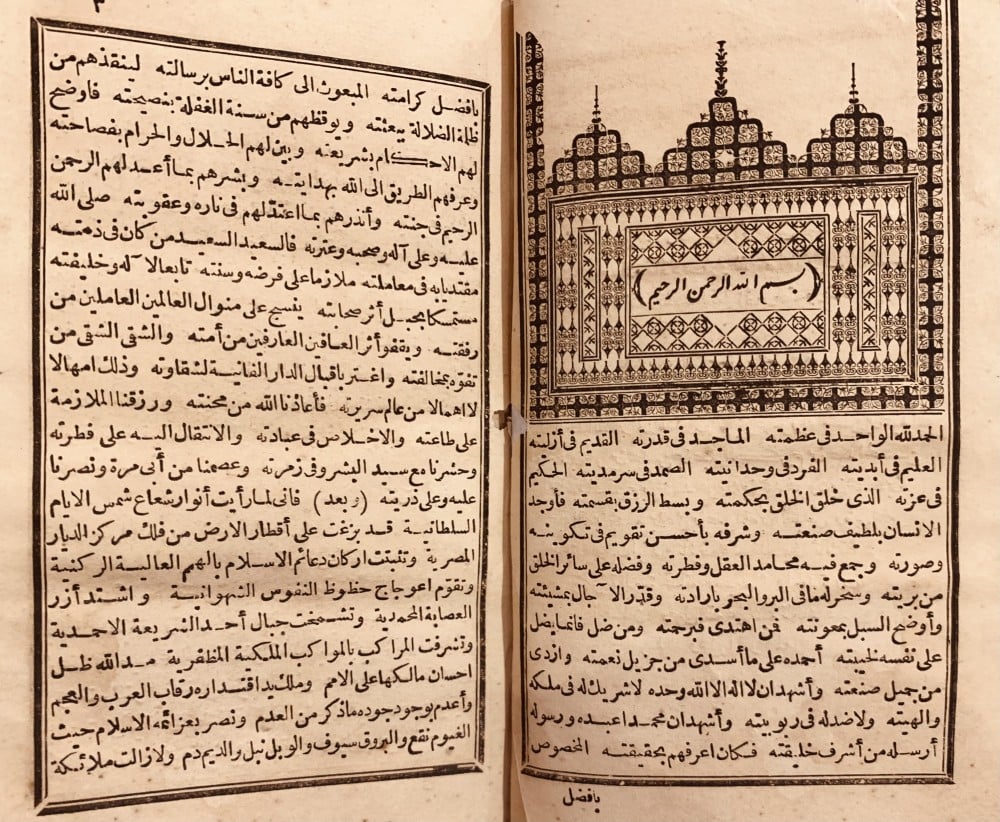 (بسم الله الرحمن الرحيم)
الحمد لله الواحد فى عظمته الماجد فى قدرته القديم فى أزليته
العليم فى أبديته الفرد فى وحدانيته الصمد فى سرمديته الحكيم
فى عزته الذى خلق الخلق بحكمته وبسط الرزق بقسمته فأوجد
الانسان بلطيف صنعته وشرفه بأحسن تقويم فى تكوينه
وصورته وجمع فيه محامد العقل وفطرته وفضله على سائر الخلق
من بريته وسخر له ما فى البر والبحر بارادته وقدر الآجال بمشيئته
وأوضح السبل بمعونته فمن اهتدى فبرحمته ومن ضل فانما يضل
على نفسه لخيبته أحمده على ما أسدى من جزيل نعمته وازدى
من جميل صنعته وأشهد ان لا اله الا الله وحده لا شريك له فى ملكه
والهيته ولا ضد له فى ربوبيته وأشهد ان محمدا عبده ورسوله
أرسله من أشرف خليقته فكان اعرفهم بحقيقته المخصوص
بافضل
٣
بافضل كرامته المبعوث الى كافة الناس برسالته لينقذهم من
ظلمة الضلالة ببعثته ويوقظهم من سنة الغفلة بنصيحته فاوضح
لهم الاحكام بشريعته وبين لهم الحلال والحرام بفصاحته
وعرفهم الطريق الى الله بهدايته وبشرهم بما أعد لهم الرحمن
الرحيم فى جنته وأنذرهم بما اعتد لهم فى ناره وعقوبته صلى الله
عليه وعلى آله وصحبه وعترته فالسعيد السعيد من كان فى ذمته
مقتديا به فى معاملته ملازما على فرضه وسنته تابعا لآله وخليفته
مستمسكا بحبل أثر صحابته ينسج على منوال العالمين العاملين من
رفقته ويقفو أثر العارفين من أمته والشقى الشقى من
تفوه بمخالفته واغتر باقبال الدار الفانية لشقاوته وذلك امهالا
لا اهمالا من عالم سريرته فأعاذنا الله من محنته ورزقنا الملازمة
على طاعته والاخلاص فى عبادته والانتقال اليه على فطرته
وحشرنا مع سيد البشر وفى زمرته وعصمنا من أبى مرة ونصرنا
عليه وعلى ذريته (وبعد) فانى لما رأيت أنوار شعاع شمس الايام
السلطانية قد بزغت على أقطار الارض من فلك مركز الديار
المصرية وتثبتت اركان دعائم الاسلام بالهمم العالية الركنية
وتقوم اعوجاج حظوظ النفوس الشهوانية واشتد أزر
العصابة المحمدية وتشمخت جبال أحد الشريعة الاحمدية
وتشرفت المراكب بالمواكب الملكية المظفرية مد الله ظل
احسان مالكها على الامم وملك يد اقتداره رقاب العرب والعجم
وأعدم بوجود جوده ما ذكر من العدم ونصر بعزائمه الاسلام حيث
الغيوم نقع والبروق سيوف والوبل نبل والديم دم ولا زالت ملائكة